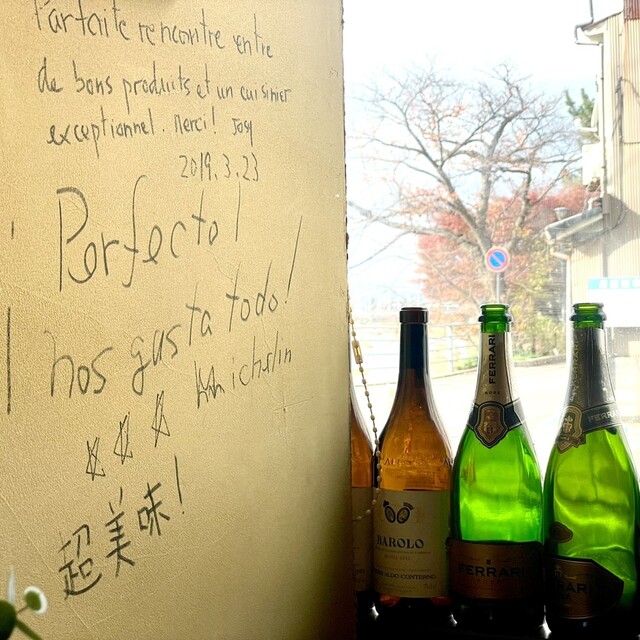 Parfaite rencontre entre
de bons produits et un cuisinier
exceptionnel. Merci! Josy
2019.3.23
Perfecto!
¡nos gusta todo!
Michelin
超美味!
BAROLO
FERRARI
FERRARI
FERRARI